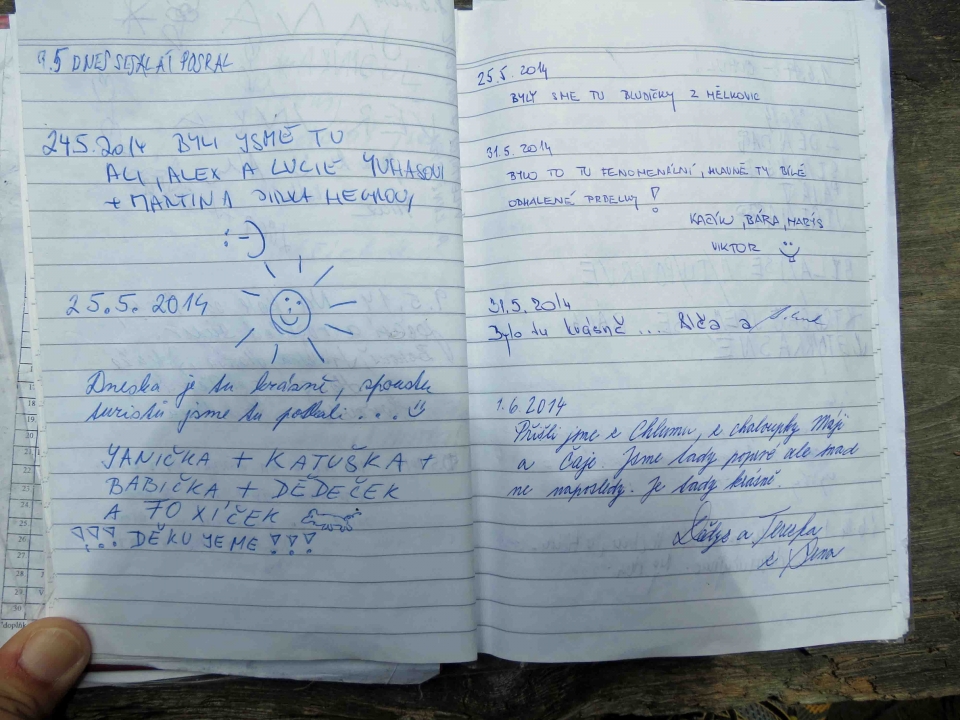 9.5 DNES SE
24.5.2014 BYLI JSME TU
ALI, ALEX A LUCIE YUHASOVI
+ MARTINA JIRKA
:-)
25.5.2014
Dneska je tu krásně, spoustu
turistů jsme tu potkali ...
JANIČKA + KATUŠKA +
BABIČKA + DĚDEČEK
A TOXÍČEK
!!! DĚKUJEME !!!
25.5.2014
BYLY SME TU BLUDIČKY Z MĚLKOVIC
31.5.2014
BYLO TO TU FENOMENÁLNÍ, HLAVNĚ TY BÍLÉ
ODHALENÉ PRDELKY!
KAČÍK, BÁRA, MARYS
VIKTOR
31.5.2014
Bylo tu krásně ... a
1.6.2014
Přišli jme z Chlumu, z chaloupky Máji
a Čáje. Jsme tady poprvé ale snad
ne naposledy. Je tady krásně.
a Terezka